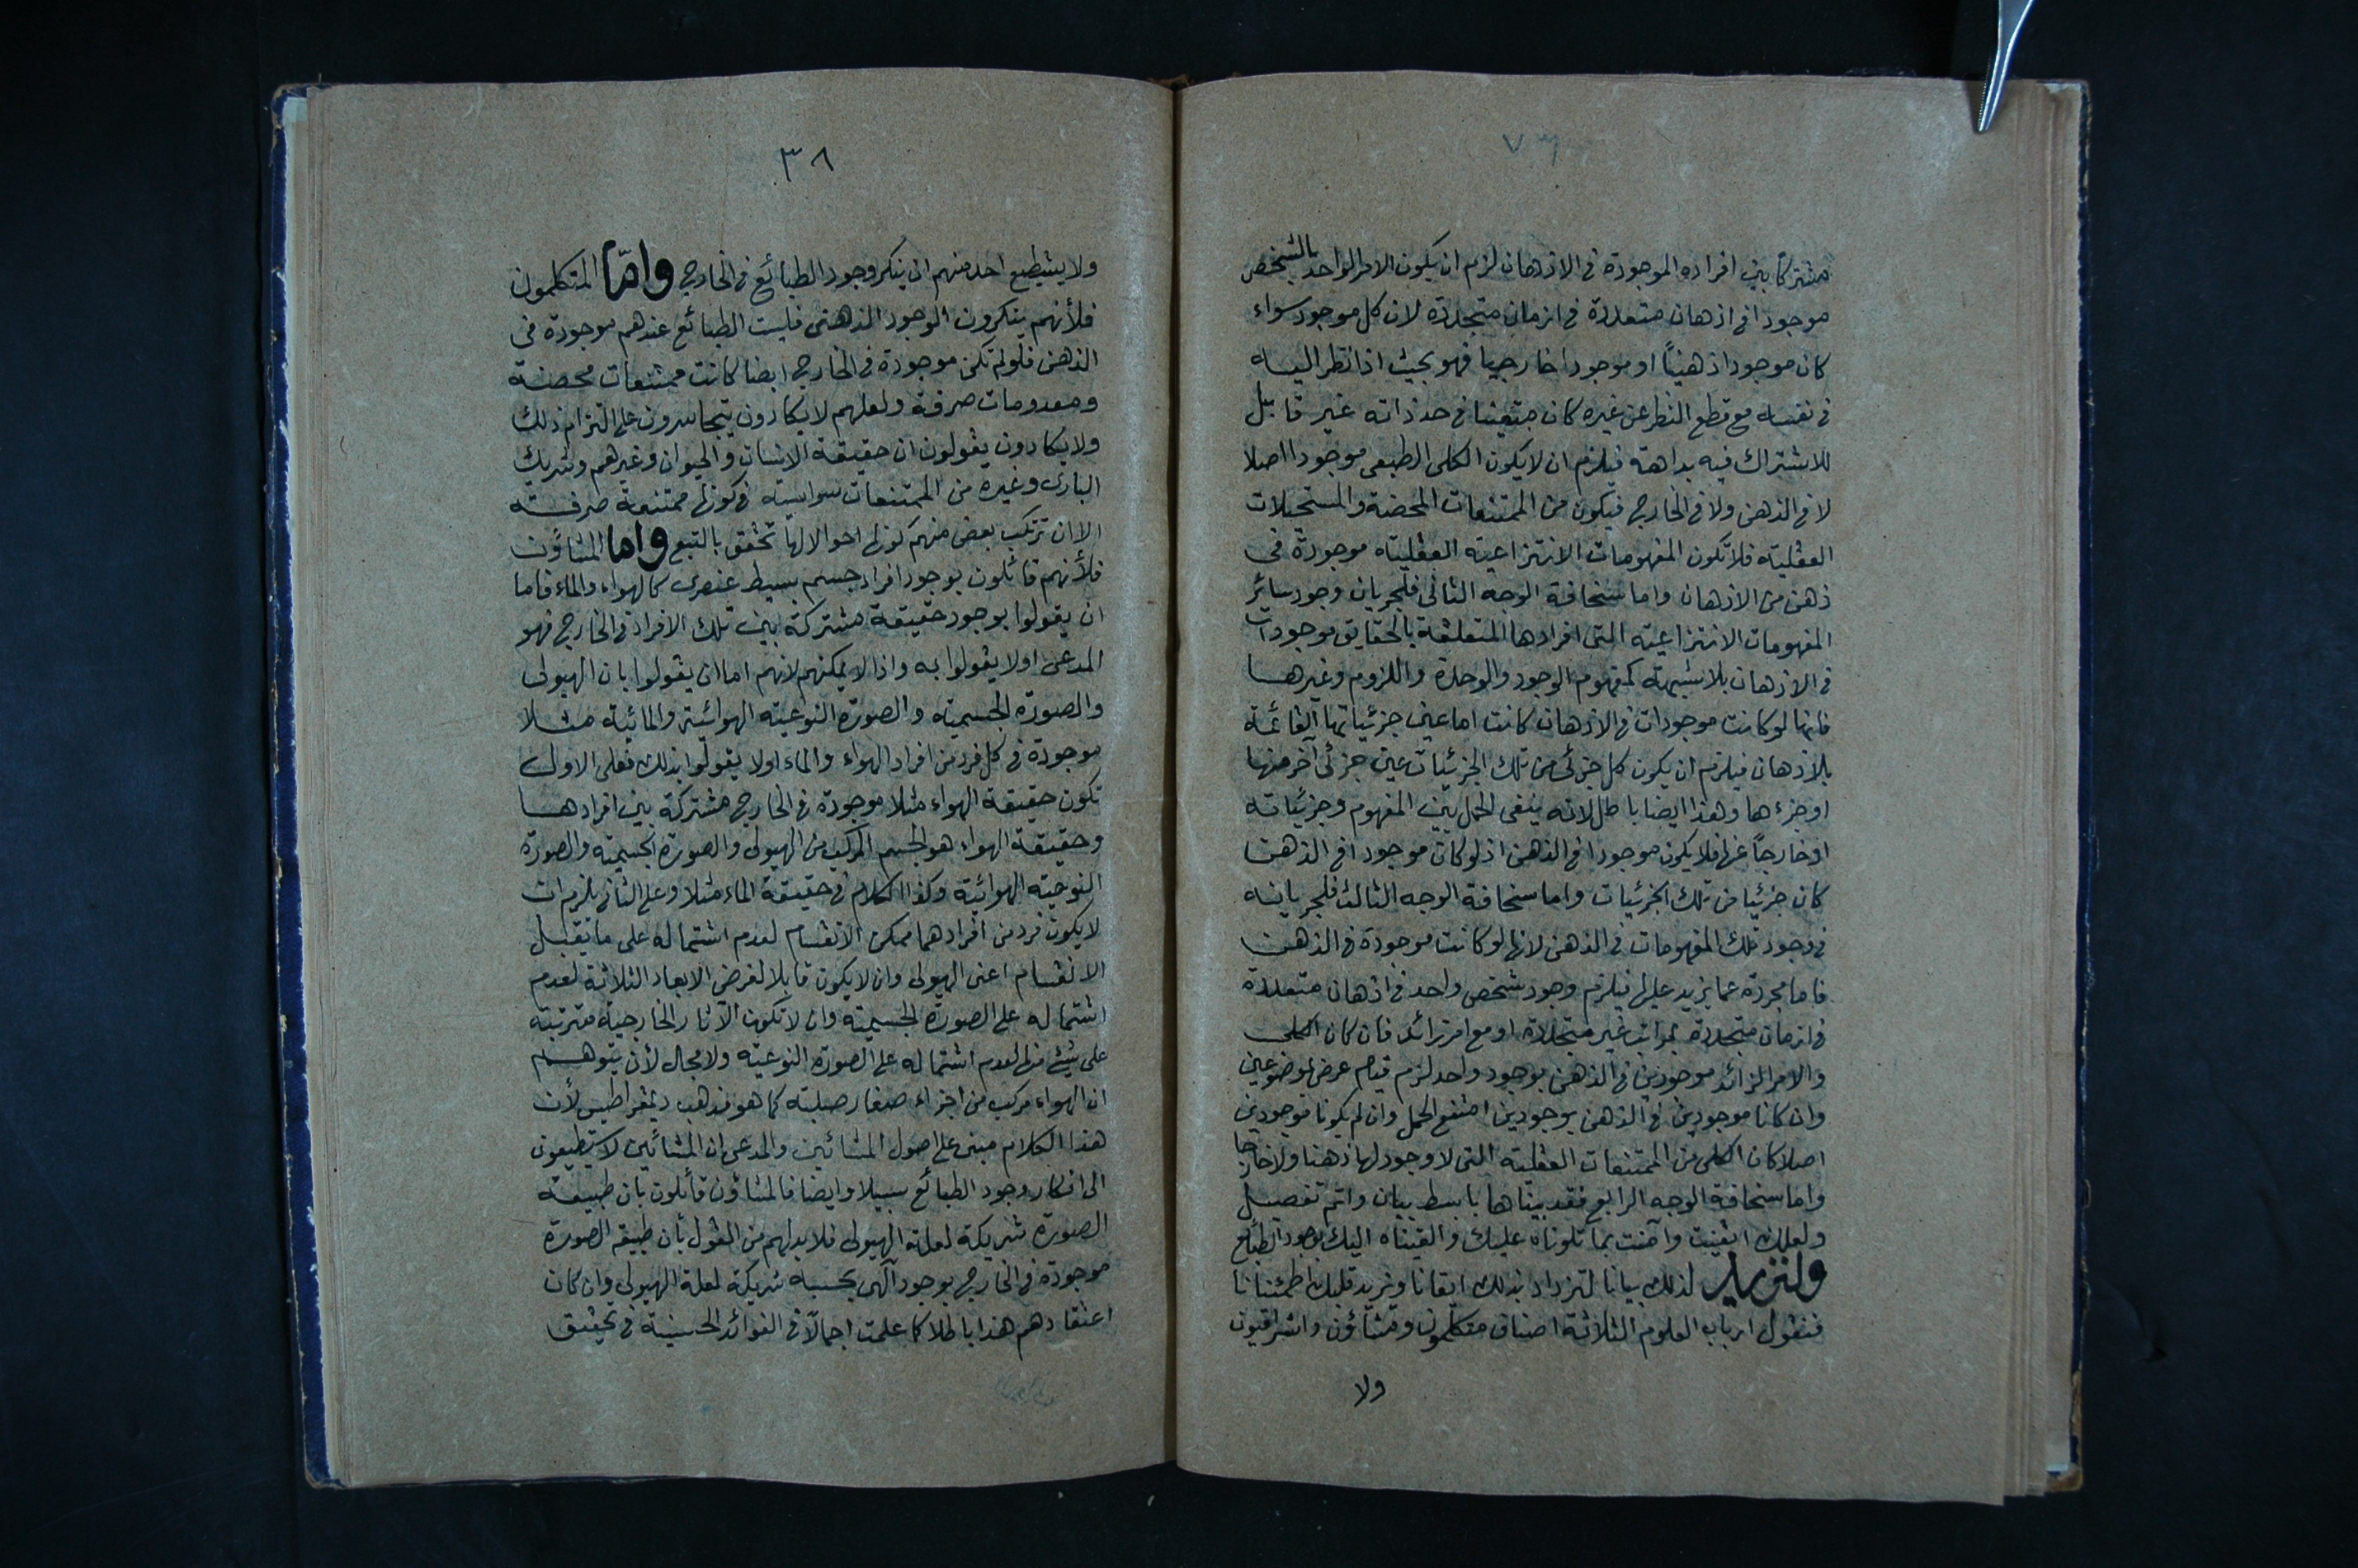 مشتركا بين افراده الموجودة فى الاذهان لزم ان يكون الامر الواحد بالشخص
موجودا فى اذهان متعددة فى ازمان متجددة لان كل موجود سواء
كان موجودا ذهنيًا او موجودا خارجيا فهو بحيث اذا نظر اليه
فى نفسه مع قطع النظر عن غيره كان متعينا فى حد ذاته غير قابل
للاشتراك فيه بداهة فيلزم ان لا يكون الكلى الطبعى موجودا اصلا
لا فى الذهن ولا فى الخارج فيكون من الممتنعات المحضة والمستحيلات
العقلية فلا تكون المفهومات الانتزاعية العقلية موجودة فى
ذهن من الاذهان واما سخافة الوجه الثانى فلجريان وجود سائر
المفهومات الانتزاعية التى افرادها المتعلقة بالحقايق موجودات
فى الاذهان بلا شبهة كمفهوم الوجود والوحدة واللزوم وغيرها
فانها لو كانت موجودات فى الاذهان كانت اما عين جزئياتها القائمة
بالاذهان فيلزم ان يكون كل جزئى من تلك الجزئيات عين جزئى آخر منها
او جزءها وهذا ايضا باطل لانه ينفى الحمل بين المفهوم وجزئياته
او خارجاً عنها فلا يكون موجودا فى الذهن اذ لو كان موجودا فى الذهن
كان جزئيا من تلك الجزئيات واما سخافة الوجه الثالث فلجريانه
فى وجود تلك المفهومات فى الذهن لانها لو كانت موجودة فى الذهن
فاما مجردة عما يزيد عليها فيلزم وجود شخص واحد فى اذهان متعددة
فى ازمان متجددة بمراتب غير متجددة او مع امر زائد فان كان الكلى
والامر الزائد موجودين فى الذهن بوجود واحد لزم قيام عرض بموضوعين
وان كانا موجودين فى الذهن بوجودين امتنع الحمل وان لم يكونا موجودين
اصلا كان الكلى من الممتنعات العقلية التى لا وجود لها ذهنا ولا خارجا
واما سخافة الوجه الرابع فقد بيناها بابسط بيان واتم تفصيل
ولعلك ايقنت وآمنت بما تلوناه عليك والقيناه اليك بوجود الطبائع
ولنزيد لذلك بيانا لتزداد بذلك ايقانا ونزيد قلبك اطمئنانا
فنقول ارباب العلوم الثلاثة اصناف متكلمون ومشاؤن واشراقيون
ولا
٣٨
ولا يستطيع احد منهم ان ينكر وجود الطبائع فى الخارج واما المتكلمون
فلأنهم ينكرون الوجود الذهنى فليست الطبائع عندهم موجودة فى
الذهن فلو لم تكن موجودة فى الخارج ايضا كانت ممتنعات محضة
ومعدومات صرفة ولعلهم لا يكادون يتجاسرون على التزام ذلك
ولا يكادون يقولون ان حقيقة الانسان والحيوان وغيرهم وشريك
البارى وغيره من الممتنعات سواسية فى كونها ممتنعة صرفة
الا ان ترتكب بعض منهم كونها احوالا لها تحقق بالتبع واما المشاؤن
فلأنهم قائلون بوجود افراد جسم بسيط عنصرى كالهواء والماء فاما
ان يقولوا بوجود حقيقة مشتركة بين تلك الافراد فى الخارج فهو
المدعى او لا يقولوا به واذا لا يمكنهم لانهم اما ان يقولوا بان الهيولى
والصورة الجسمية والصورة النوعية الهوائية والمائية مثلا
موجودة فى كل فرد من افراد الهواء والماء او لا يقولوا بذلك فعلى الاول
تكون حقيقة الهواء مثلا موجودة فى الخارج مشتركة بين افرادها
وحقيقة الهواء هو الجسم المركب من الهيولى والصورة الجسمية والصورة
النوعية الهوائية وكذا الكلام فى حقيقة الماء مثلا وعلى الثانى يلزم ان
لا يكون فرد من افرادهما ممكن الانقسام لعدم اشتماله على ما يقبل
الانقسام اعنى الهيولى وان لا يكون قابلا لفرض الابعاد الثلاثة لعدم
اشتماله على الصورة الجسمية وان لا تكون الآثار الخارجية مترتبة
على شئ منها لعدم اشتماله على الصورة النوعية ولا مجال لأن يتوهم
ان الهواء مركب من اجزاء صغار صلبة كما هو مذهب ديمقراطيس لأن
هذا الكلام مبنى على اصول المشائين والمدعى ان المشائين لا يستطيعون
الى انكار وجود الطبائع سبيلا وايضا فالمشاؤن قائلون بان طبيعة
الصورة شريكة لعلة الهيولى فلا بد لهم من القول بأن طبيعة الصورة
موجودة فى الخارج بوجود آلهى بحسبه شريكة لعلة الهيولى وان كان
اعتقادهم هذا باطلا كما علمت اجمالاً فى الفوائد الحسينية فى تحقيق